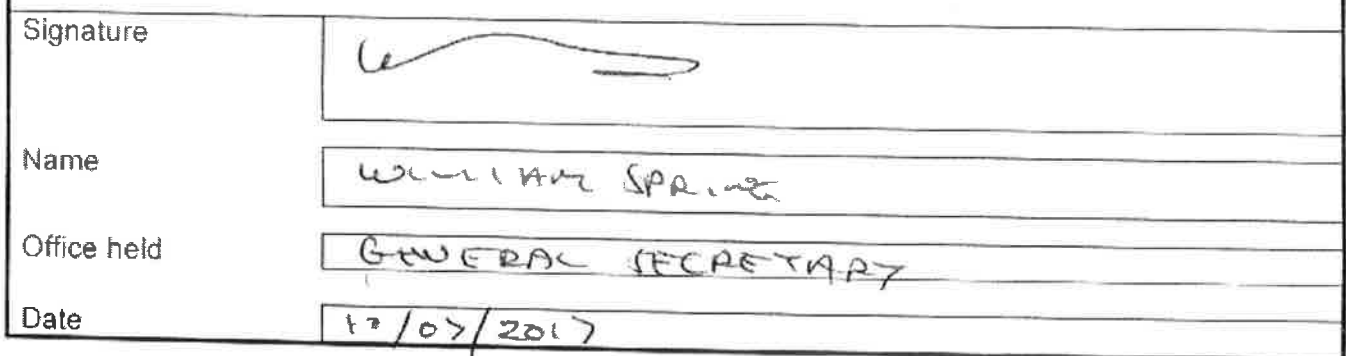 Signature
Name
WILLIAM SPRING
Office held
GENERAL SECRETARY
Date
/07/2017